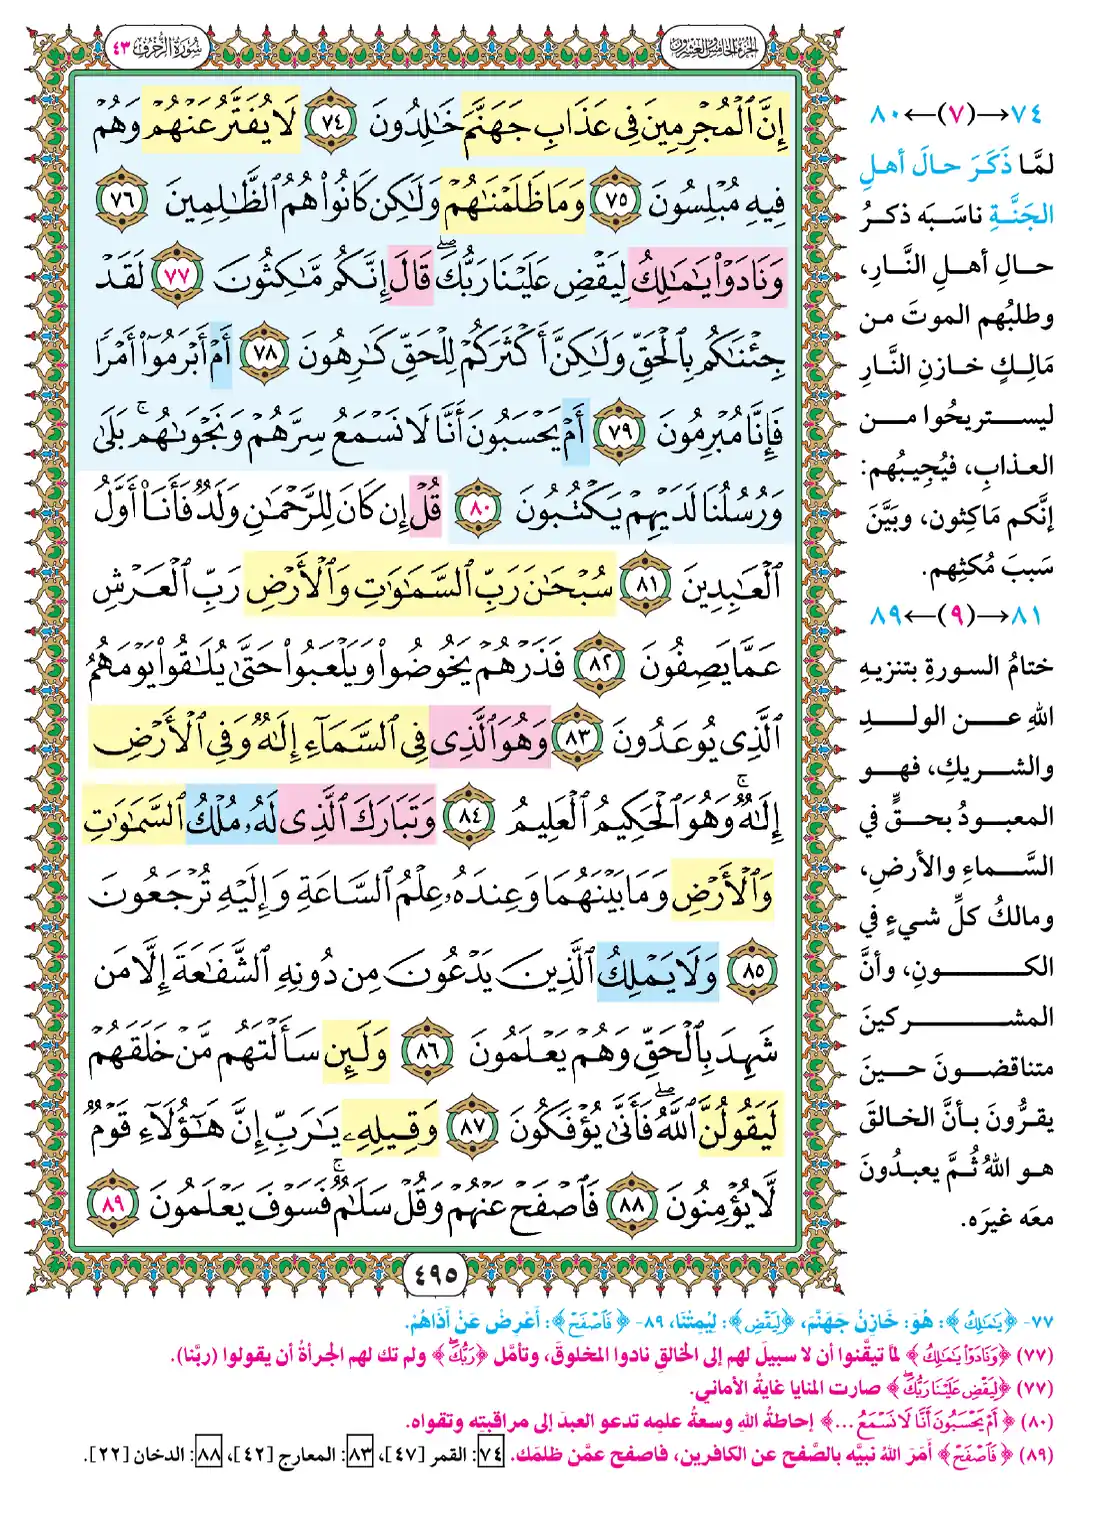 سُورَةُ الزُّخْرُفِ ٤٣
الجُزْءُ الخَامِسُ وَالعِشْرُونَ
إِنَّ ٱلْمُجْرِمِينَ فِى عَذَابِ جَهَنَّمَ خَٰلِدُونَ ٧٤ لَا يُفَتَّرُ عَنْهُمْ وَهُمْ
فِيهِ مُبْلِسُونَ ٧٥ وَمَا ظَلَمْنَٰهُمْ وَلَٰكِن كَانُوا۟ هُمُ ٱلظَّٰلِمِينَ ٧٦
وَنَادَوْا۟ يَٰمَٰلِكُ لِيَقْضِ عَلَيْنَا رَبُّكَ ۖ قَالَ إِنَّكُم مَّٰكِثُونَ ٧٧ لَقَدْ
جِئْنَٰكُم بِٱلْحَقِّ وَلَٰكِنَّ أَكْثَرَكُمْ لِلْحَقِّ كَٰرِهُونَ ٧٨ أَمْ أَبْرَمُوٓا۟ أَمْرًا
فَإِنَّا مُبْرِمُونَ ٧٩ أَمْ يَحْسَبُونَ أَنَّا لَا نَسْمَعُ سِرَّهُمْ وَنَجْوَىٰهُم ۚ بَلَىٰ
وَرُسُلُنَا لَدَيْهِمْ يَكْتُبُونَ ٨٠ قُلْ إِن كَانَ لِلرَّحْمَٰنِ وَلَدٌ فَأَنَا۠ أَوَّلُ
ٱلْعَٰبِدِينَ ٨١ سُبْحَٰنَ رَبِّ ٱلسَّمَٰوَٰتِ وَٱلْأَرْضِ رَبِّ ٱلْعَرْشِ
عَمَّا يَصِفُونَ ٨٢ فَذَرْهُمْ يَخُوضُوا۟ وَيَلْعَبُوا۟ حَتَّىٰ يُلَٰقُوا۟ يَوْمَهُمُ
ٱلَّذِى يُوعَدُونَ ٨٣ وَهُوَ ٱلَّذِى فِى ٱلسَّمَآءِ إِلَٰهٌ وَفِى ٱلْأَرْضِ
إِلَٰهٌ ۚ وَهُوَ ٱلْحَكِيمُ ٱلْعَلِيمُ ٨٤ وَتَبَارَكَ ٱلَّذِى لَهُۥ مُلْكُ ٱلسَّمَٰوَٰتِ
وَٱلْأَرْضِ وَمَا بَيْنَهُمَا وَعِندَهُۥ عِلْمُ ٱلسَّاعَةِ وَإِلَيْهِ تُرْجَعُونَ
٨٥ وَلَا يَمْلِكُ ٱلَّذِينَ يَدْعُونَ مِن دُونِهِ ٱلشَّفَٰعَةَ إِلَّا مَن
شَهِدَ بِٱلْحَقِّ وَهُمْ يَعْلَمُونَ ٨٦ وَلَئِن سَأَلْتَهُم مَّنْ خَلَقَهُمْ
لَيَقُولُنَّ ٱللَّهُ ۖ فَأَنَّىٰ يُؤْفَكُونَ ٨٧ وَقِيلِهِۦ يَٰرَبِّ إِنَّ هَٰٓؤُلَآءِ قَوْمٌ
لَّا يُؤْمِنُونَ ٨٨ فَٱصْفَحْ عَنْهُمْ وَقُلْ سَلَٰمٌ ۚ فَسَوْفَ يَعْلَمُونَ ٨٩
٤٩٥
٧٤→(٧)←٨٠
لمَّا ذَكَرَ حالَ أهلِ
الجَنَّةِ ناسَبَه ذكرُ
حالِ أهلِ النَّارِ،
وطلبُهم الموتَ من
مَالِكٍ خازنِ النَّارِ
ليستريحُوا من
العذابِ، فيُجِيبُهم:
إنَّكم مَاكِثون، وبَيَّنَ
سَببَ مُكثِهم.
٨١→(٩)←٨٩
ختامُ السورةِ بتنزيهِ
اللهِ عن الولدِ
والشريكِ، فهو
المعبودُ بحقٍّ في
السَّماءِ والأرضِ،
ومالكُ كلِّ شيءٍ في
الكونِ، وأنَّ
المشركينَ
متناقضونَ حينَ
يقرُّونَ بأنَّ الخالقَ
هو اللهُ ثُمَّ يعبدُونَ
معَه غيرَه.
٧٧- ﴿يَٰمَٰلِكُ﴾: هُوَ: خَازِنُ جَهَنَّمَ، ﴿لِيَقْضِ﴾: لِيُمِتْنَا، ٨٩- ﴿فَٱصْفَحْ﴾: أَعْرِضْ عَنْ أَذَاهُمْ.
(٧٧) ﴿وَنَادَوْا۟ يَٰمَٰلِكُ﴾ لمَّا تيقَّنوا أن لا سبيلَ لهم إلى الخالقِ نادوا المخلوقَ، وتأمَّل ﴿رَبُّكَ﴾ ولم تك لهم الجرأةُ أن يقولوا (ربَّنا).
(٧٧) ﴿لِيَقْضِ عَلَيْنَا رَبُّكَ﴾ صارت المنايا غايةُ الأماني.
(٨٠) ﴿أَمْ يَحْسَبُونَ أَنَّا لَا نَسْمَعُ ...﴾ إحاطةُ اللهِ وسعةُ علمِه تدعو العبدَ إلى مراقبتِه وتقواه.
(٨٩) ﴿فَٱصْفَحْ﴾ أمَرَ اللهُ نبيَّه بالصَّفح عن الكافرين، فاصفح عمَّن ظلمَك. ٧٤: القمر [٤٧]، ٨٣: المعارج [٤٢]، ٨٨: الدخان [٢٢].